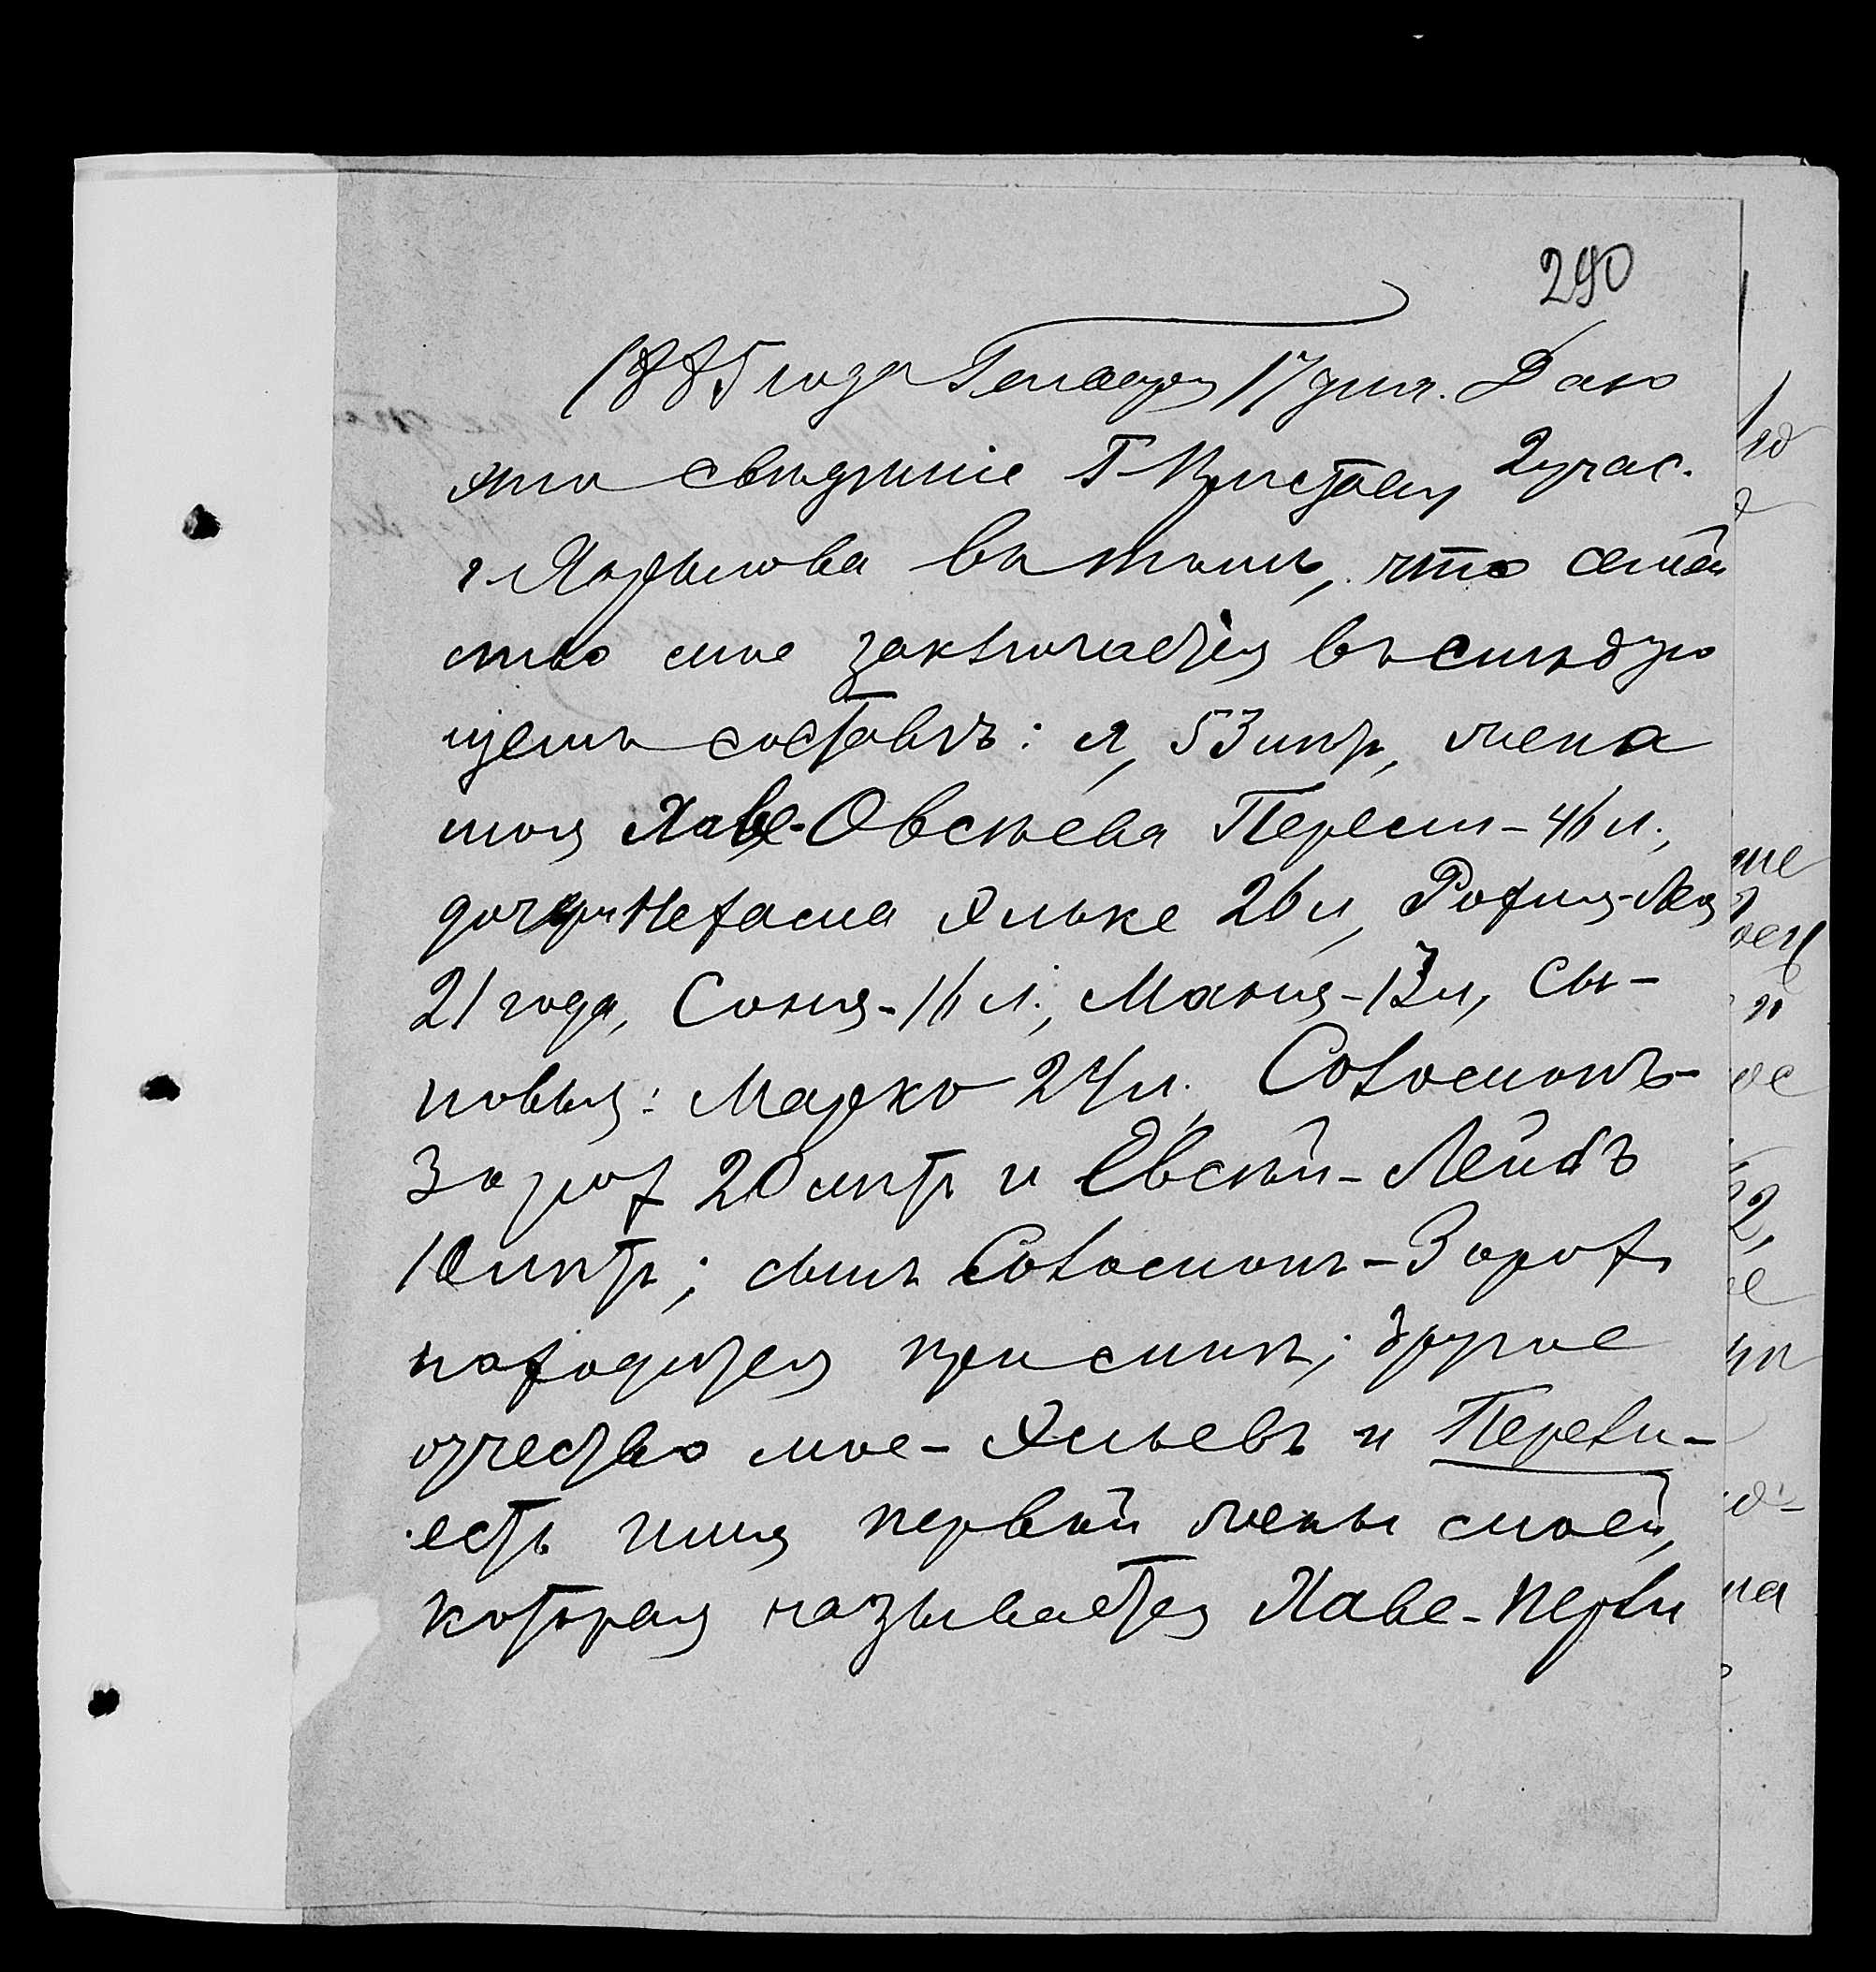 290
1885 года Генваря 17 дня. Даю
это сведение Г. Приставу 2 учас.
г. Харькова въ томъ, что семей
ство мое заключается въ следую
щемъ составѣ: я, 53 лѣтъ, жена
моя Хаве-Овсѣева Перели - 46 л.,
дочери Нехама Эльке 26 л, Рохля-Лея
21 года, Соня - 16 л., Маня - 13 л, сы-
новья: Марко 24 л. Соломонъ-
Зорох 20 лѣтъ и Евсѣй-Лейбъ
10 лѣтъ; сынъ Соломонъ-Зорохъ
находится при мнѣ; другое
отчество мое - Эльевъ и Перели -
есть имя первой жены моей,
которая называется Хаве-Перли